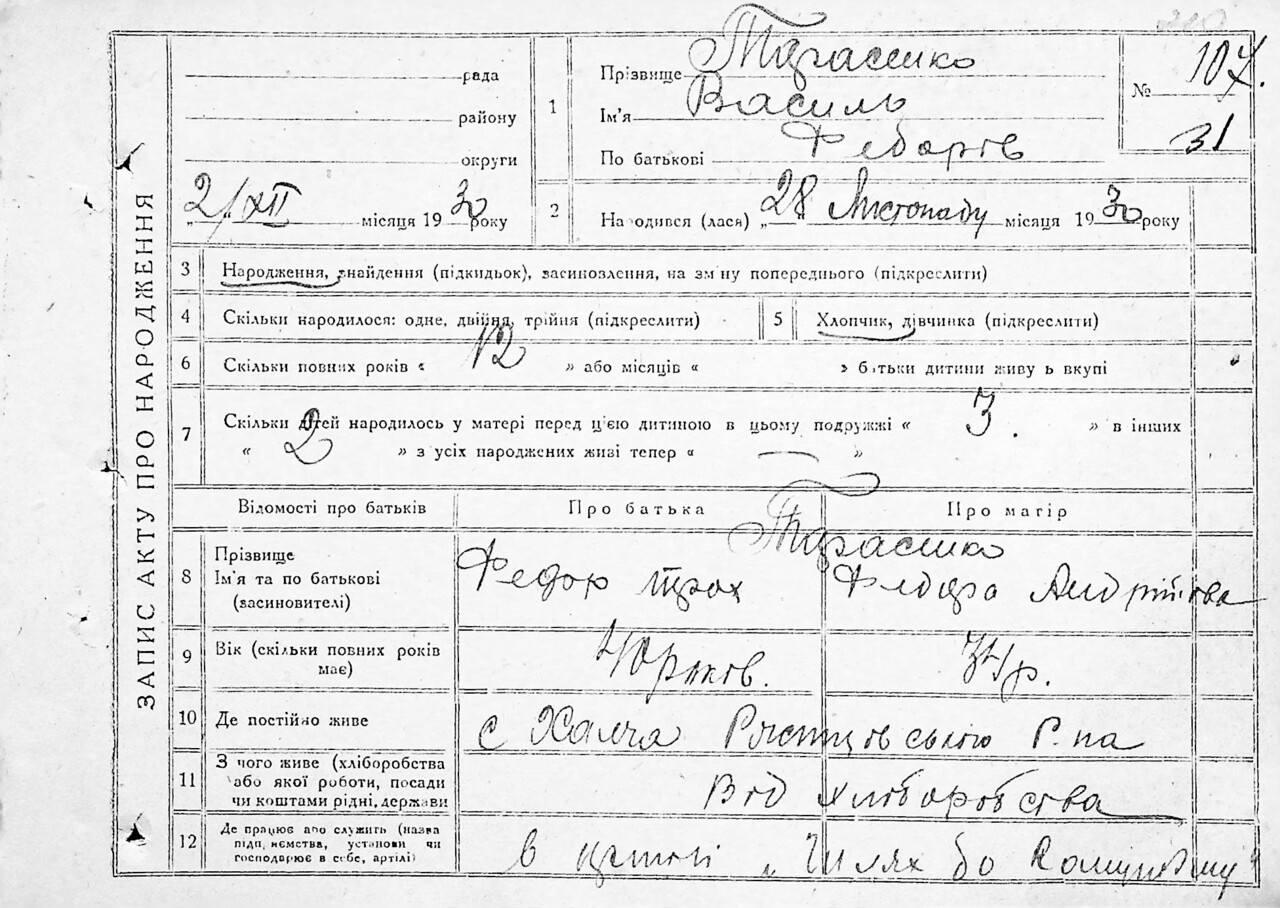 ЗАПИС АКТУ ПРО НАРОДЖЕННЯ
рада
району
округи
2/XII місяця 1930 року
1 Прізвище Тарасенко
Ім'я Василь
По батькові Федорів
№ 107.
31
2 Народився (лася) „28 Листопаду місяця 1930 року
3 Народження, знайдення (підкидьок), засиновлення, на зміну попереднього (підкреслити)
4 Скільки народилося: одне, двійня, трійня (підкреслити)
5 Хлопчик, дівчинка (підкреслити)
6 Скільки повних років « 12 » або місяців « » батьки дитини живуть вкупі
7 Скільки дітей народилось у матері перед цією дитиною в цьому подружжі « 3. » в інших
« 2 » з усіх народжених живі тепер « — »
Відомості про батьків Про батька Про матір
8 Прізвище
Ім'я та по батькові
(засиновителі)
Тарасенко
Федор Федора Андріївна
9 Вік (скільки повних років
має)
40 років. 34 р.
10 Де постійно живе
с Халча ського Р-на
11 З чого живе (хліборобства
або якої роботи, посади
чи коштами рідні, держави
Від хліборобства
12 Де працює або служить (назва
підприємства, установи чи
господарює в себе, артілі)
в „Шлях до Комунізму"